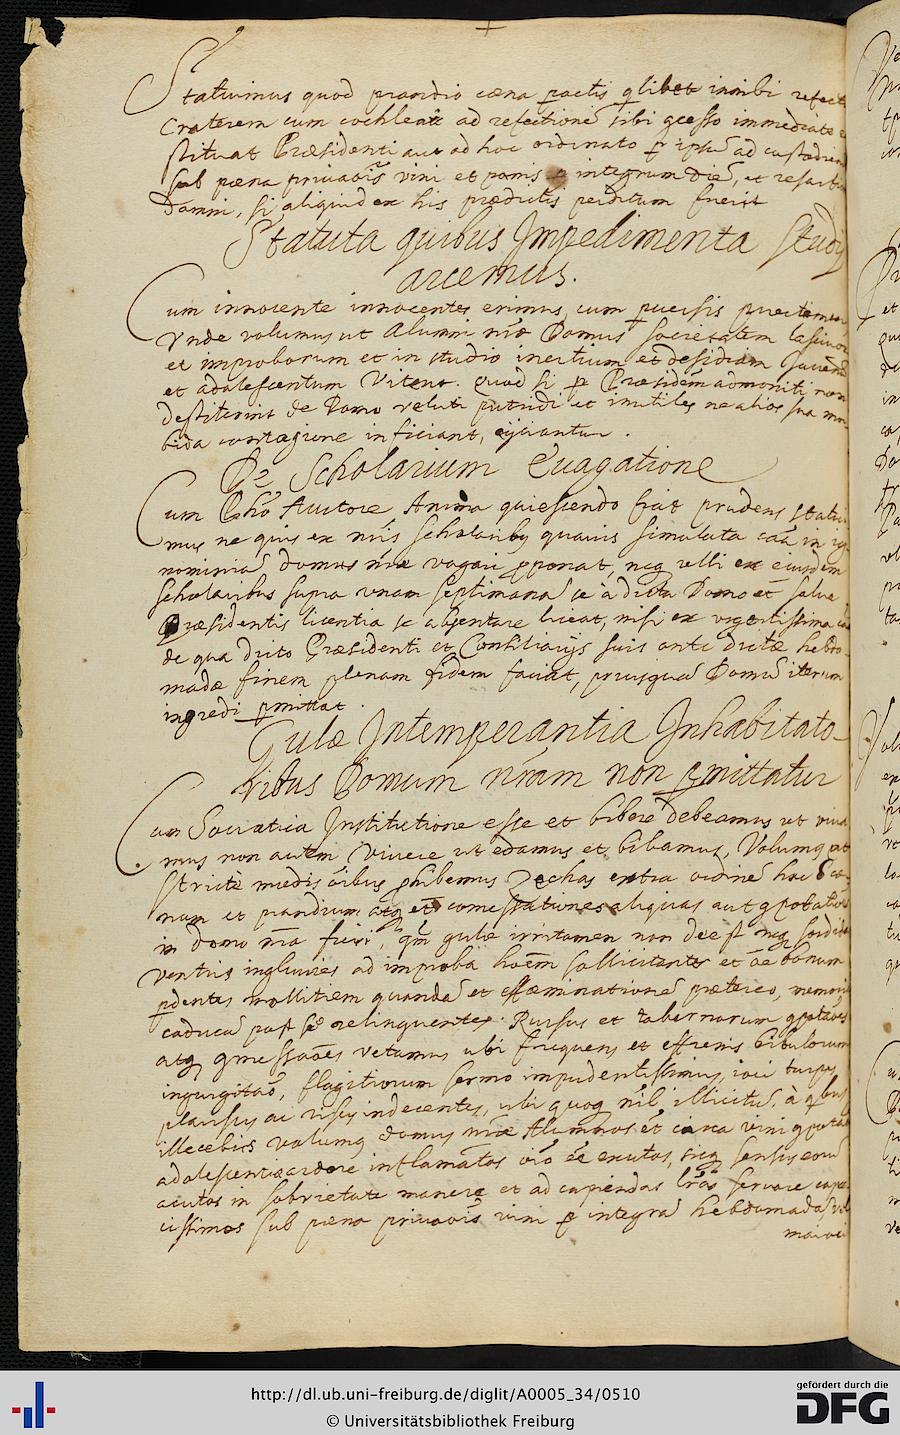 Statuimus quod prandio cœna pactis qlibet inibi refect
Craterem cum cochleari ad refectionē sibi gcesso immediate
stituat Præsidenti aut ad hoc ordinato p ipsū ad custodien
sub pœna privaōis vini et panis p integrum diē, et resarti
Damni, si aliquid ex his prædictis perditum fuerit
Statuta quibus Impedimenta Studij
arcemus.
Cum innocente innocentes erimus, cum puersis
Vnde volumus ut Alumni nrē Domus societatem lasciuor
et improborum et in studio inertium et desidiam Juvenū
et adolescentum Vitent. quod si p Præsidem admoniti non
destiterint de Domo veluti putridi et inutiles ne alios sua mor
bida contagione inficiant, eijciantur.
De Scholarium Euagatione
Cum Pho Auctore Anima quiescendo fiat prudens statui
mus ne quis ex nris scholaribq quauis simulata cāa in ig
nominiā domus nræ vagari pponat, neq velli ex eiusdem
scholaribus supra vnam septimanā se à dicta Domo et salua
Præsidentis licentia se absentare liceat, nisi ex vrgentissima cā
de qua dicto Præsidenti et Consiliarijs suis ante dictæ hebdo
madæ finem plenam fidem faciat, priusquā Domū iterum
ingredi pmittat.
Gulæ Intemperantia Inhabitato-
ribus Domum nram non pmittatur
Cum Socratica Institutione esse et bibere debeamus ut viua
mus non autem viuere ut edamus et bibamus, Volumq et
strictè oībus phibemus Zechas extra ordinē hoc ē cœ
nam et prandium atq et comessationes aliquas aut gpotatio
in domo nra fieri, qm gulæ irritamen non deest neq sordida
ventris ingluuies ad improba hoēm sollicitante et oē bonum
pdentes mollitiem quandā et effœminationē prætereo, memoriā
caducā post se relinquentes. Rursus et tabernarum gpotaōes
atq gmessaōes vetamus ubi frequens et effrenis bibulorum
ingurgitaō, flagitiorum sermo impudentissimus, ioci turpes
plausus ac risus indecentes, ubi quoq nil illicitū, à qbus
illecebris volumq domus nræ Alumnos et circa vini gpotaō
adolescentia ardore inflamatos oīo ēe exutos, sicq sensus eorū
acutos in sobrietate manere et ad capiendas lrās seruare capa
cissimos sub pœna priuaōis vini p integrā hebdomadā vel
maiori
http://dl.ub.uni-freiburg.de/diglit/A0005_34/0510
© Universitätsbibliothek Freiburg
gefördert durch die
DFG